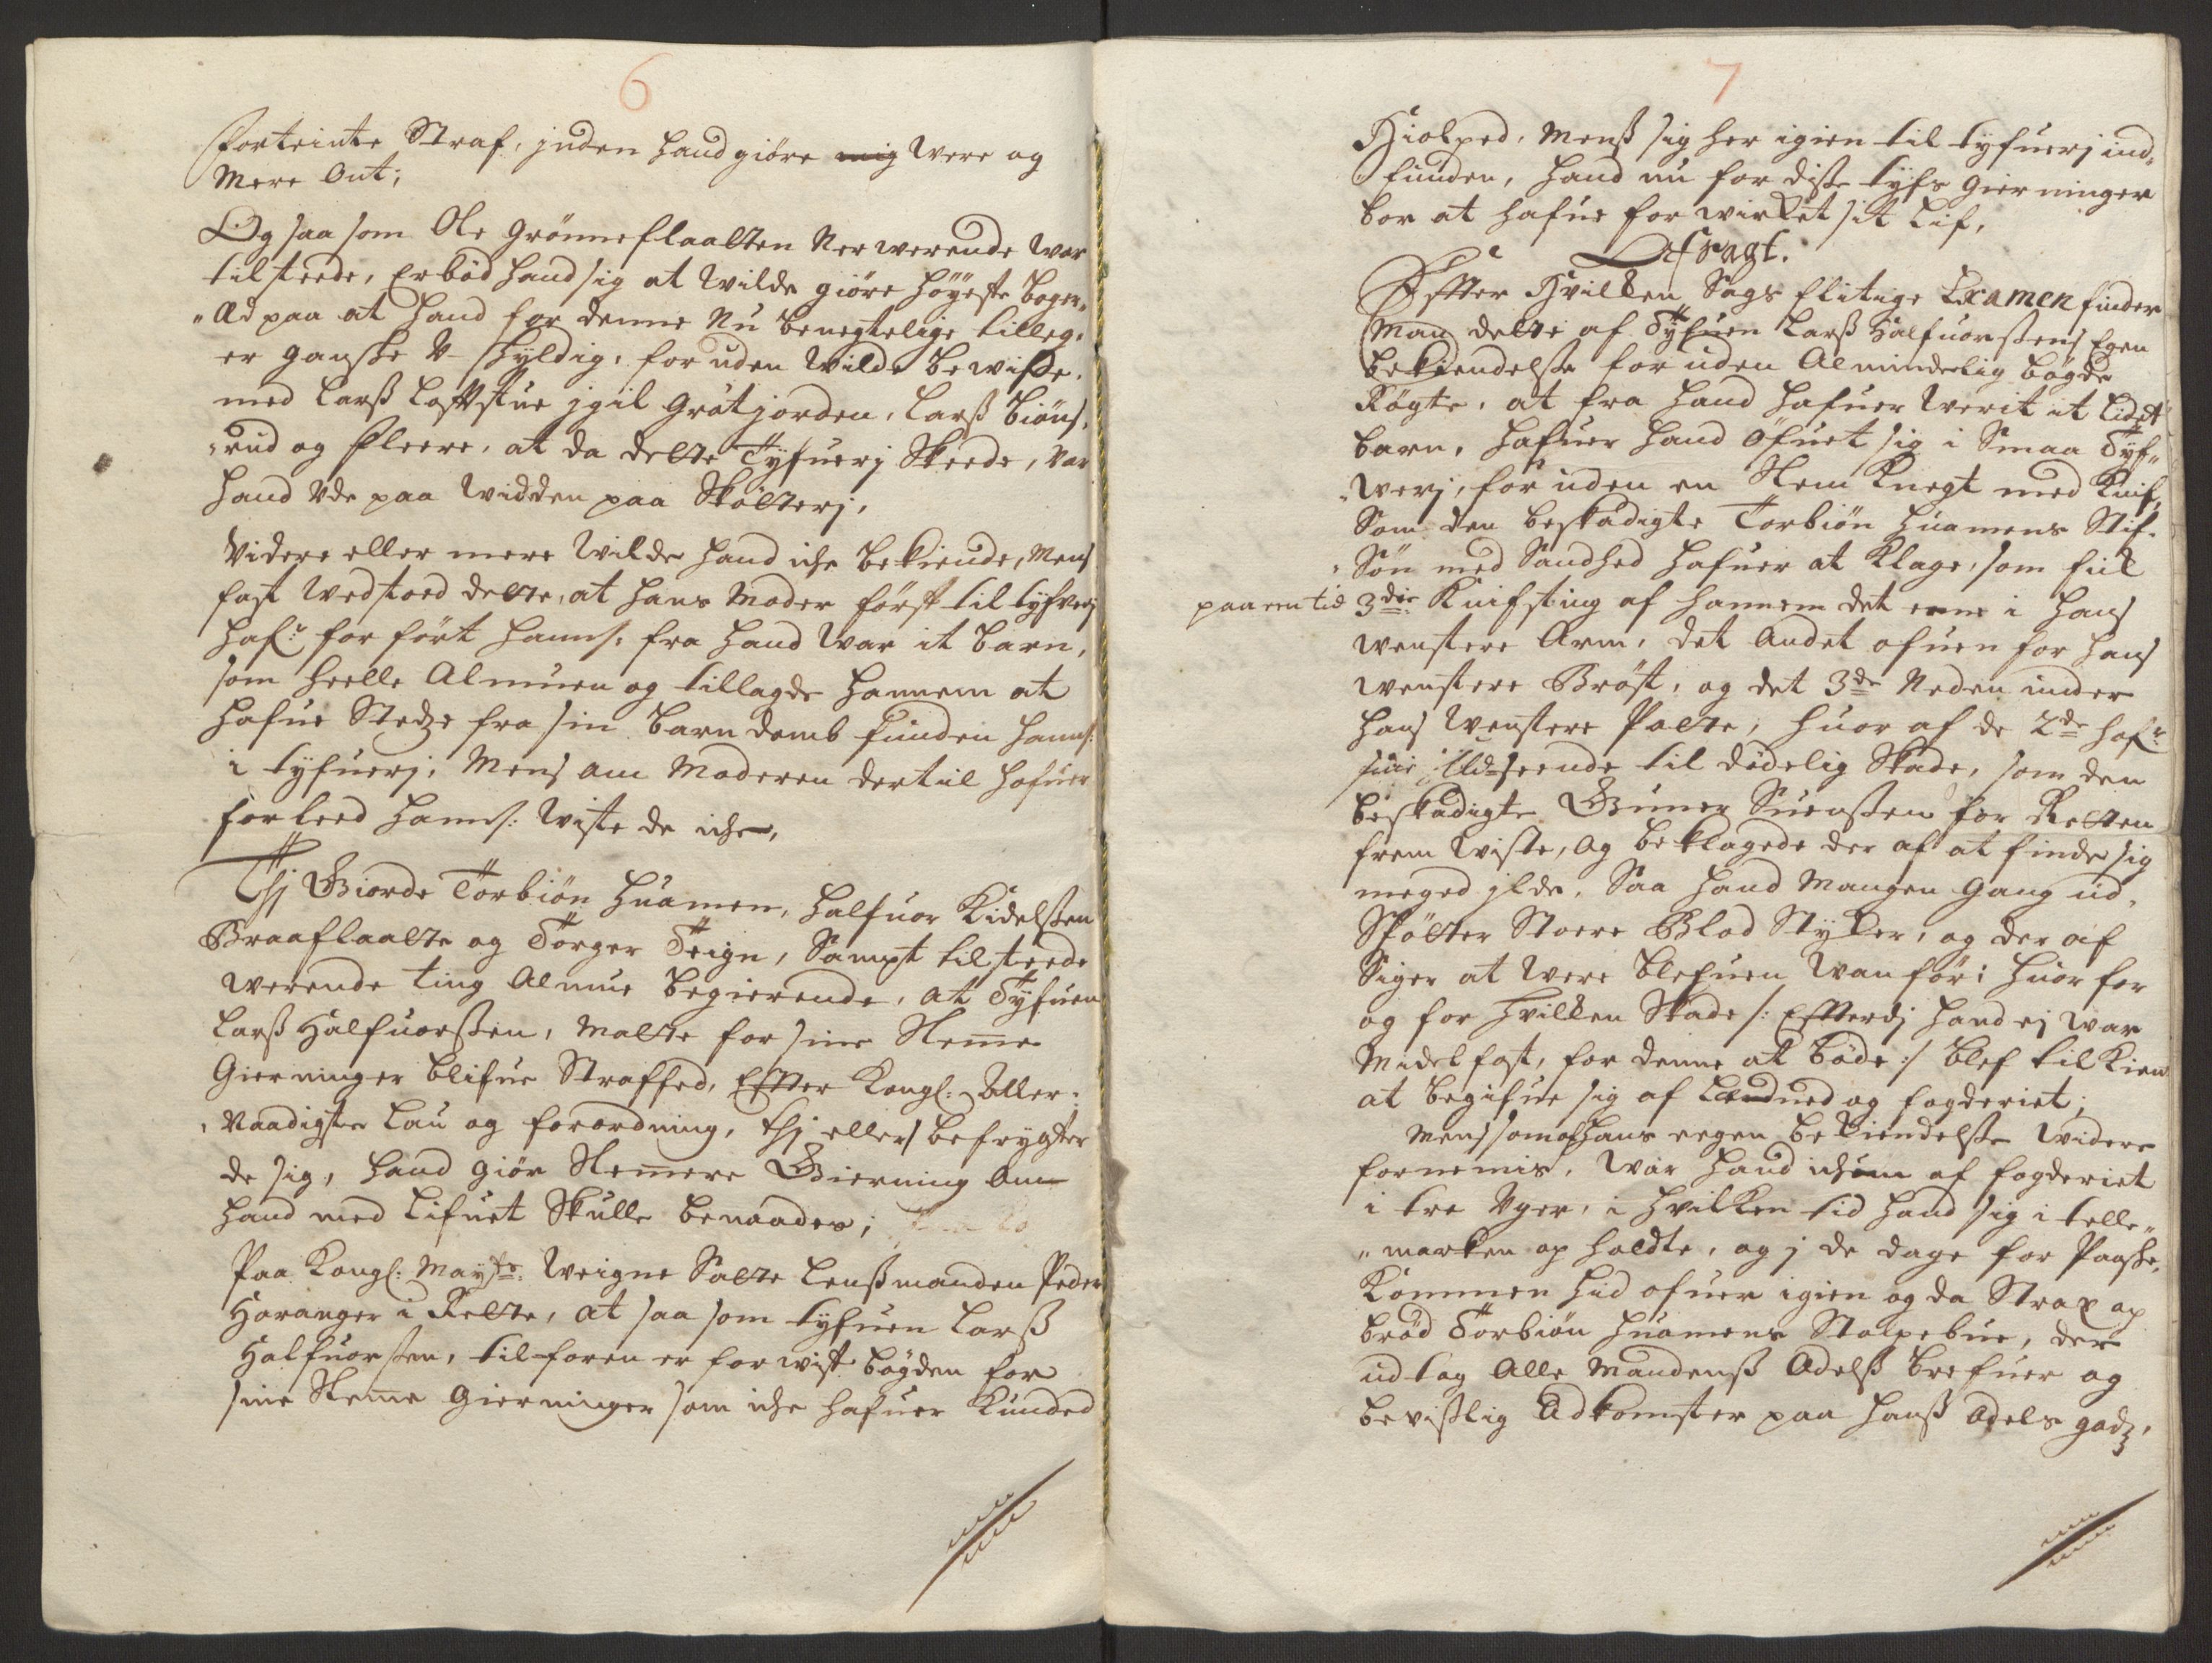 6
Forteinte Straf, inden hand giöre mig Were og
Mere Ont;
Og saa som Ole Grönneflaatten Nerwerende War
tilsteede, Erböd hand sig at Wilde giöre höyeste boger¬
„Æd paa at hand for denne Nu benegtelige tilleg.
er gandske V-skyldig, for uden Wilde bewisse,
med Larss Loftstue jgil Gråtjorden, Larss Biöns¬
„rud og fleere, at da dette Tyfuerj Skeede, Var
hand Vde paa Widden paa Skötterj,
Videre eller mere Wilde hand iche bekiende, Mens
fast Wedstoed dette, at hans Moder först til tyfverj
hafr: forfört hannß: fra hand War it barn,
som heelle Almuen og tillagde hannem at
hafue Stedze fra sin barndomb funden hannß:
i tyfuerj, Mens om Moderen dertil hafuer
forleed hannß: Wiste de iche,
Thj Giorde Torbiön Huamen, Halfuor Kidelssen
Braaflaatte og Torger Teign, Sampt tilsteede
werende ting Almue begierende, at Tyfuen
Larss Halfuorssen, Matte for sine Slemme
Gierninger blifue Straffed, Efter Kongl: Aller¬
„Naadigste Lau og forordning, thj ellers befrygter
de sig, hand giör Slemmere Gierning Om
hand med Lifuet Skulle benaades;
Paa Kongl: Mayts: Weigne Satte Lenssmanden Peder
Haranger i Rette, at saa som tyfuen Larss
Halfuorssen, til foren er forwist bögden for
sine Slemme Gierninger som iche hafuer Kunded
7
Hiolped, Menss sig her igien til tyfuerj ind¬
„funden, hand nu for disse tyfs Gierninger
bör at hafue forwirket sit Lif,
Afsagt.
Efter Hvilken Sags flitige Examen finder
Man dette af Tyfuen Larss Halfuorssens Egen
bekiendelsse foruden Almindelig bögde
Rögte, at fra hand hafuer Werit it Lidet
barn, hafuer hand öfuet sig i Smaa Tyf¬
„Werj, foruden en Slem Knegt med Knif,
Som den beskadigte Torbiön Huamens Stif¬
„Sön med Sandhed hafuer at Klage, som fiik
paa een tid 3die Knifsting af hannem det eene i hans
wenstere Arm, det Andet ofuen for hans
wenstere Bröst, og det 3de Neden under
hans Wenstere Patte, huor af de 2de hafr:
sine Udseende til dödelig Skade, som den
beskadigte Gunner Suenssen for Retten
frem Wiste, og beklagede der af at finde sig
meged ilde, Saa hand Mangen Gang ud¬
Spötter Stoere Blod Stycker, og der af
Siger at Were blefuen Wanför; huor for
og for Hvilken Skade /: Efterdj hand ej War
Middel fast, for denne at böde :/ blef tilkiend
at begifue sig af Landued og fogderiet;
Mens som af hans eegen bekiendelsse Widere
fornemis, War hand iche om af fogderiet
i tre Uger, i Hvilken tid hand sig i telle¬
„marken op holdte, og j de dage for Paaske,
Kommen hid ofuer igien og da Strax op
bröd Torbiön Huamens Stolpebue, der
udtog Alle Mandenss Odelss brefuer og
bevisslig Adkomster paa hanss Odels godz,